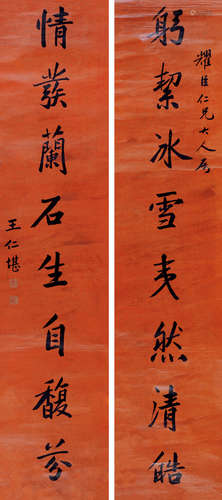 耀臣仁兄大人属
躬絜冰雪夷然清皓
情发兰石生自馥芬
王仁堪